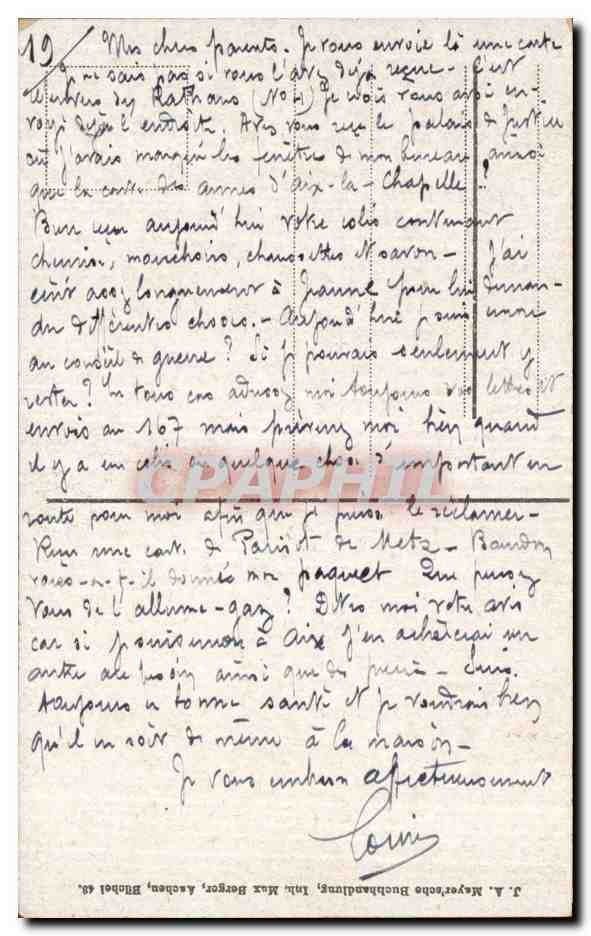 19 Mes chers parents. Je vous envoie là une carte
Je ne sais pas si vous l'avez déjà reçue - C'est
l'envers du Rathaus (No 4) Je crois vous avoir en-
voyé déjà l'endroit. Avez vous reçu le palais de Justice
où j'avais marqué les fenêtres de mon bureau ainsi
que la carte des armes d'Aix-la-Chapelle ?
Bien reçu aujourd'hui votre colis contenant
chemise, mouchoirs, chaussettes et savon - J'ai
écrit assez longuement à Jeanne pour lui deman-
der différentes choses. - Aujourd'hui je suis
au conseil de guerre ? Si je pouvais seulement y
rester ? En tous cas adressez moi toujours vos lettres et
envois au 167 mais prévenez moi bien quand
il y a un colis ou quelque chose d'important en
route pour moi afin que je puisse le réclamer -
Reçu une carte de Paris et de Metz -
vous-a-t-il donné mon paquet Que pensez
vous de l'allume-gaz ? Dites moi votre avis
car si je suis encore à Aix j'en achèterai un
autre au besoin ainsi que des
Toujours en bonne santé et je voudrais bien
qu'il en soit de même à la maison -
Je vous embrasse affectueusement
Louis
J. A. Mayer'sche Buchhandlung, Inh. Max Berger, Aachen, Büchel 48.
CPAPHIL